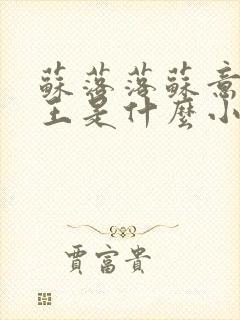 蘇落落蘇意
王是什麼小
賈富貴